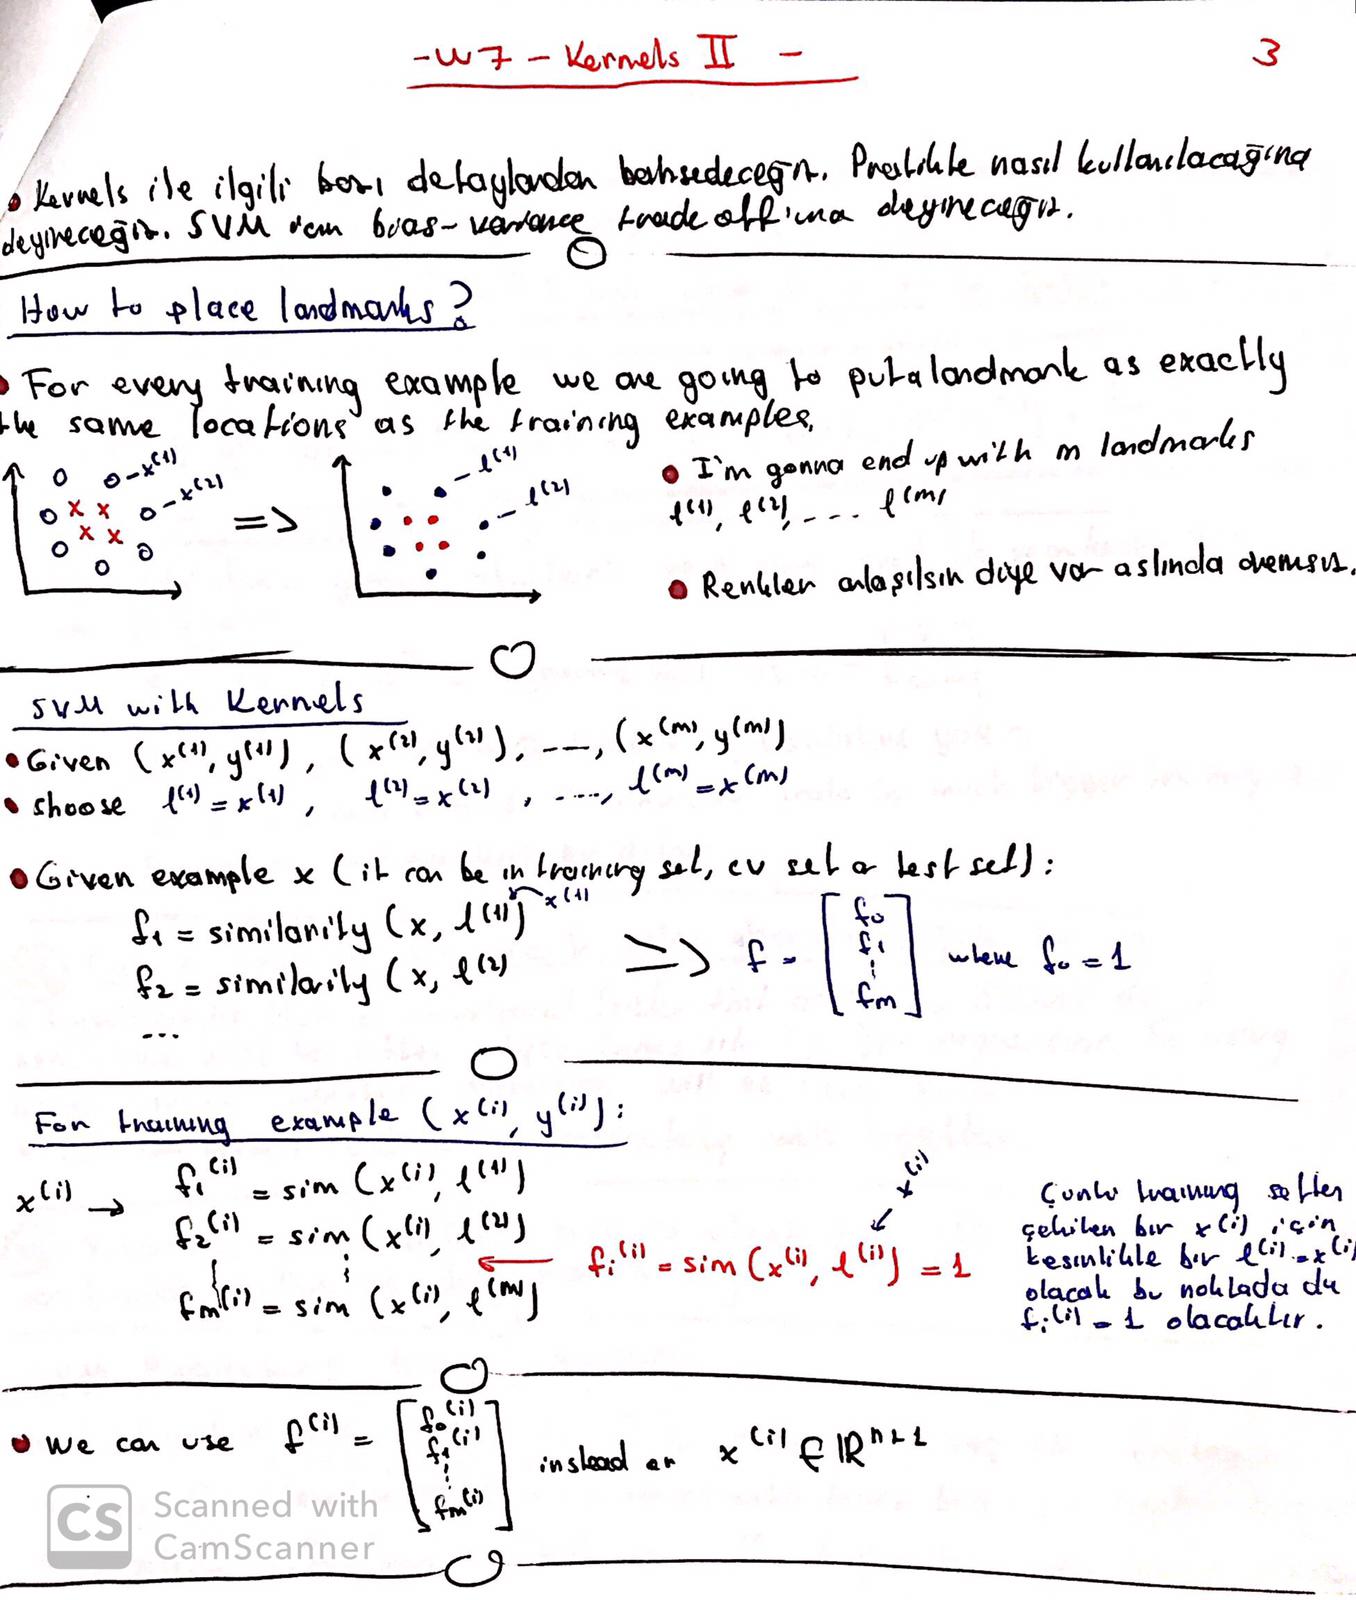 -W7 - Kernels II -
3
• Kernels ile ilgili bazı detaylardan bahsedeceğiz. Pratikte nasıl kullanılacağına
değineceğiz. SVM 'in bias-variance trade offuna değineceğiz.
How to place landmarks?
• For every training example we are going to put a landmark as exactly
the same locations as the training examples.
x^(1)
x^(2)
=>
l^(1)
l^(2)
• I'm gonna end up with m landmarks
l^(1), l^(2), .... l^(m)
• Renkler anlaşılsın diye var aslında önemsiz.
SVM with Kernels
• Given (x^(1), y^(1)), (x^(2), y^(2)), ..., (x^(m), y^(m))
• choose l^(1) = x^(1), l^(2) = x^(2), ...., l^(m) = x^(m)
• Given example x (it can be in training set, cv set or test set):
f1 = similarity (x, l^(1)) x^(1)
f2 = similarity (x, l^(2)
...
=> f = [f0 f1 ⋮ fm] where f0 = 1
For training example (x^(i), y^(i)):
x^(i) → f1^(i) = sim (x^(i), l^(1))
f2^(i) = sim (x^(i), l^(2))
⋮
fm^(i) = sim (x^(i), l^(m))
← fi^(i) = sim (x^(i), l^(i)) = 1
x^(i)
Çünkü training setten
çekilen bir x^(i) için
kesinlikle bir l^(i) = x^(i)
olacak bu noktada da
fi^(i) = 1 olacaktır.
• We can use f^(i) = [f0^(i) f1^(i) ⋮ fm^(i)] instead x^(i) ∈ ℝ^n+1
CS Scanned with
CamScanner